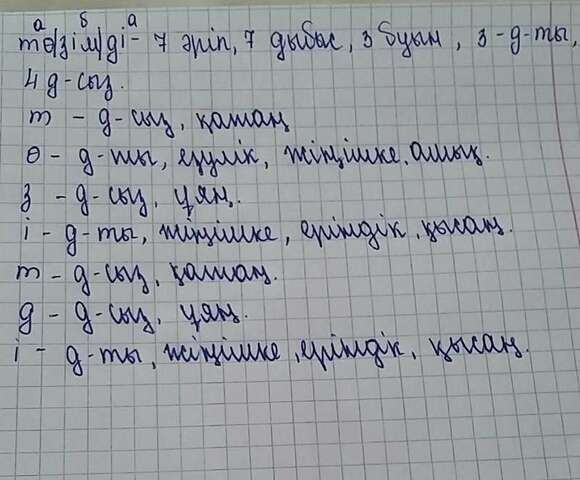 а б а
тө/зім/ді - 7 әріп, 7 дыбыс, 3 буын, 3 - д-ты,
4 д-сыз.
т - д-сыз, қатаң
ө - д-ты, езулік, жіңішке, ашық.
з - д-сыз, ұяң.
і - д-ты, жіңішке, еріндік, қысаң.
т - д-сыз, қатаң.
д - д-сыз, ұяң.
і - д-ты, жіңішке, еріндік, қысаң.